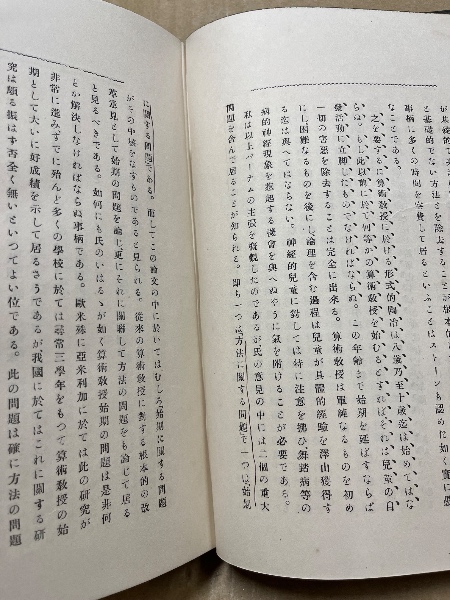 事柄に多くの時間を空費して居るといふことはスミーソンも認めた如く實に
なことである。
之を要するに算術教授に於ける形式的陶冶は八歲乃至十歲迄は始めてはな
らぬ。もし此以前に於て何等かの算術教授を始むるとすればそれは兒童の自
發活動に立脚したものでなければならぬ。この年齡まで始期を延ばすならば
一切の害惡を除去することは完全に出來る。算術教授は單純なるものを初め
にし困難なるものを後にし論理を含む過程は兒童が具體的經驗を澤山獲得す
る迄は與へてはならない。神經的兒童に對しては特に注意を拂ひ舞踏病等の
病的神經現象を惹起する機會を與へぬやうに氣を附けることが必要である。
私は以上パーナムの主張を瞥觀したのであるが氏の意見の中には二個の重大
問題を含んで居ることが知られる。卽ち一つは方法に關する問題で一つは始期
に關する問題である。而してこの論文の中に於いてはむしろ始期に關する問題
がその中核をなすものであると見られる。從來の算術教授に對する根本的の改
革意見として始期の問題を論じ更にそれに關聯して方法の問題をも論じて居る
と見るべきである。如何にも氏のいはるゝが如く算術教授始期の問題は是非何
とか解決しなければならぬ事柄である。歐米殊に亞米利加に於ては此の研究が
非常に進みすでに殆んど多くの學校に於ては尋常三學年をもつて算術教授の始
期として大いに好成績を示して居るさうであるが我國に於てはこれに關する研
究は頗る振はず否全く無いといつてよい位である。此の問題は確に方法の問題